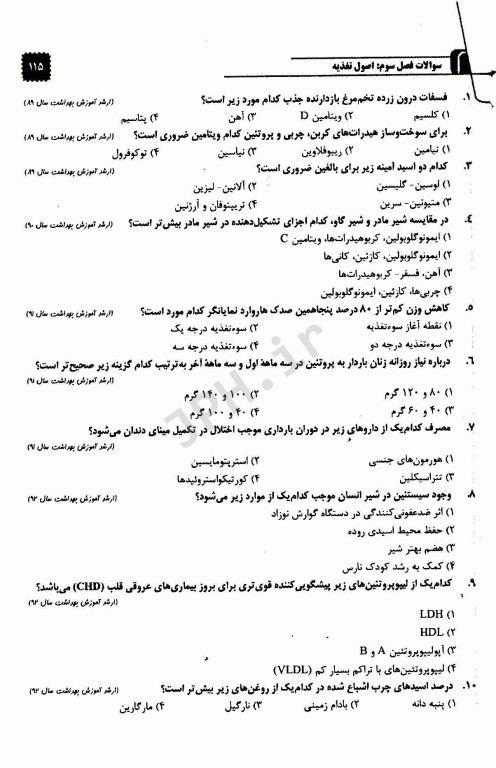 سوالات فصل سوم: اصول تغذیه ۱۱۵
۱. فسفات درون زرده تخم‌مرغ بازدارنده جذب کدام مورد زیر است؟ (ارشد آموزش بهداشت سال ۸۹)
۱) کلسیم ۲) ویتامین D ۳) آهن ۴) پتاسیم
۲. برای سوخت‌وساز هیدرات‌های کربن، چربی و پروتئین کدام ویتامین ضروری است؟ (ارشد آموزش بهداشت سال ۸۹)
۱) تیامین ۲) ریبوفلاوین ۳) نیاسین ۴) توکوفرول
۳. کدام دو اسید آمینه زیر برای بالغین ضروری است؟ (ارشد آموزش بهداشت سال ۸۹)
۱) لوسین- گلیسین ۲) آلانین- لیزین
۳) متیونین- سرین ۴) تریپتوفان و آرژنین
۴. در مقایسه شیر مادر و شیر گاو، کدام اجزای تشکیل‌دهنده در شیر مادر بیش‌تر است؟ (ارشد آموزش بهداشت سال ۹۰)
۱) ایمونوگلوبولین، کربوهیدرات‌ها، ویتامین C
۲) ایمونوگلوبولین، کازئین، کانی‌ها
۳) آهن، فسفر- کربوهیدرات‌ها
۴) چربی‌ها، کازئین، ایمونوگلوبولین
۵. کاهش وزن کم‌تر از ۸۰ درصد پنجاهمین صدک هاروارد نمایانگر کدام مورد است؟ (ارشد آموزش بهداشت سال ۹۱)
۱) نقطه آغاز سوءتغذیه ۲) سوءتغذیه درجه یک
۳) سوءتغذیه درجه دو ۴) سوءتغذیه درجه سه
۶. درباره نیاز روزانه زنان باردار به پروتئین در سه ماههٔ اول و سه ماههٔ آخر به‌ترتیب کدام گزینه زیر صحیح‌تر است؟
(ارشد آموزش بهداشت سال ۹۱)
۱) ۸۰ و ۱۲۰ گرم ۲) ۱۰۰ و ۱۴۰ گرم
۳) ۴۰ و ۶۰ گرم ۴) ۴۰ و ۱۰۰ گرم
۷. مصرف کدام‌یک از داروهای زیر در دوران بارداری موجب اختلال در تکمیل مینای دندان می‌شود؟
(ارشد آموزش بهداشت سال ۹۱)
۱) هورمون‌های جنسی ۲) استرپتومایسین
۳) تتراسیکلین ۴) کورتیکواستروئیدها
۸. وجود سیستئین در شیر انسان موجب کدام‌یک از موارد زیر می‌شود؟ (ارشد آموزش بهداشت سال ۹۲)
۱) اثر ضدعفونی‌کنندگی در دستگاه گوارش نوزاد
۲) حفظ محیط اسیدی روده
۳) هضم بهتر شیر
۴) کمک به رشد کودک نارس
۹. کدام‌یک از لیپوپروتئین‌های زیر پیشگویی‌کننده قوی‌تری برای بروز بیماری‌های عروقی قلب (CHD) می‌باشد؟
(ارشد آموزش بهداشت سال ۹۲)
۱) LDH
۲) HDL
۳) آپولیپوپروتئین A و B
۴) لیپوپروتئین‌های با تراکم بسیار کم (VLDL)
۱۰. درصد اسیدهای چرب اشباع شده در کدام‌یک از روغن‌های زیر بیش‌تر است؟ (ارشد آموزش بهداشت سال ۹۲)
۱) پنبه دانه ۲) بادام زمینی ۳) نارگیل ۴) مارگارین
JPH.ir